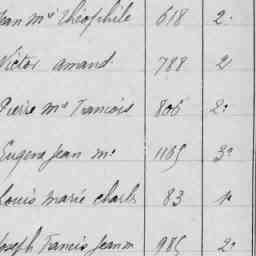 Jean Mie Théophile 618 2e
Victor Amand 788 2
Pierre Me Francois 806 2e
Eugene Jean Me 1165 3e
Louis Marie Charles 83
Joseph Francis Jean M 985 2e